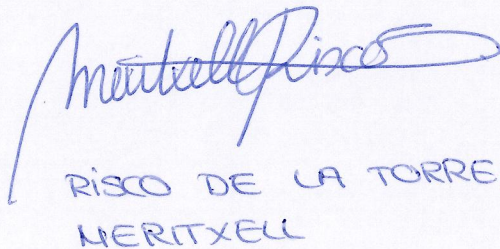 Meritxell Risco
RISCO DE LA TORRE
MERITXELL